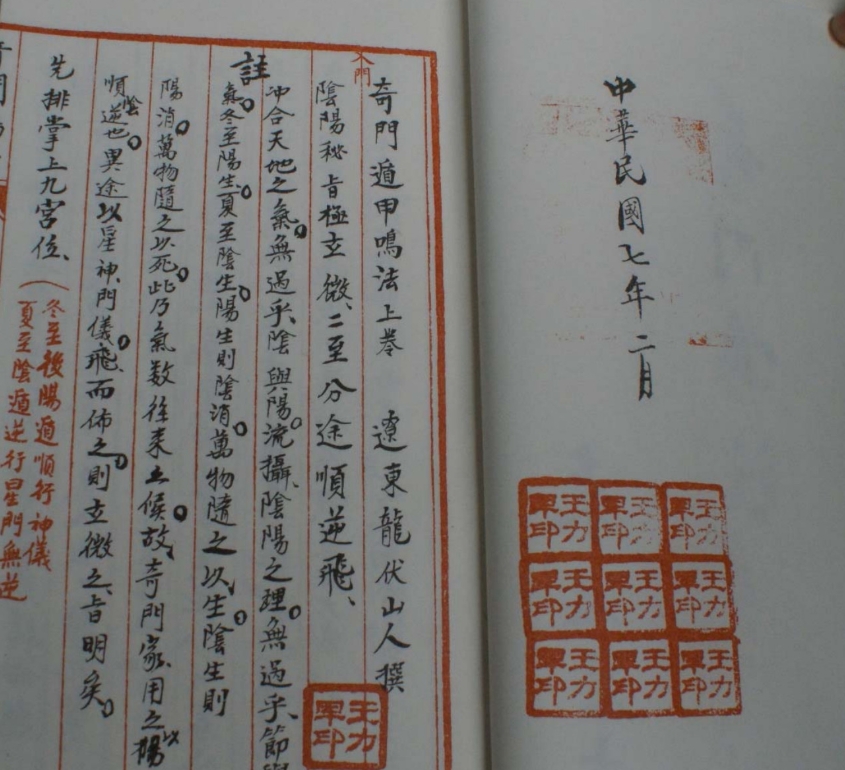 中華民國七年二月
王力軍印
王力軍印
王力軍印
王力軍印
王力軍印
王力軍印
王力軍印
王力軍印
王力軍印
入門
奇門遁甲鳴法上卷 遼東龍伏山人撰
陰陽秘旨極玄微、二至分途順逆飛、
王力軍印
註
冲合天地之氣無過乎、陰與陽流攝、陰陽之理無過乎、節與
氣冬至陽生夏至陰生陽生則陰消萬物隨之以生陰生則
陽消萬物隨之以死此乃氣数往来之候故、奇門家、用之以陽
順陰逆也異途以星神、門儀、飛、而佈之則玄微之旨明矣
先排掌上九宮位、
(冬至後陽遁順行神儀
夏至陰遁逆行星門無逆